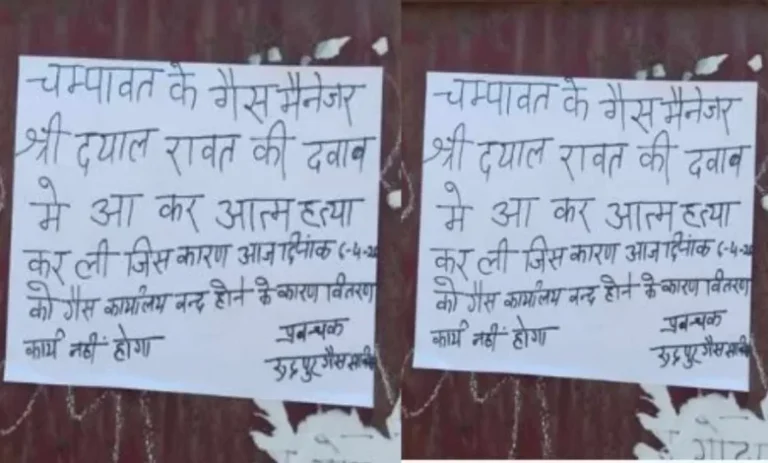 चम्पावत के गैस मैनेजर
श्री दयाल रावत की दवाब
मे आ कर आत्म हत्या
कर ली जिस कारण आज दिनांक 6-4-20
को गैस कार्यालय बन्द होने के कारण वितरण
कार्य नहीं होगा
प्रबन्धक
रुद्रपुर गैस
चम्पावत के गैस मैनेजर
श्री दयाल रावत की दवाब
मे आ कर आत्म हत्या
कर ली जिस कारण आज दिनांक 6-4-20
को गैस कार्यालय बन्द होने के कारण वितरण
कार्य नहीं होगा
प्रबन्धक
रुद्रपुर गैस